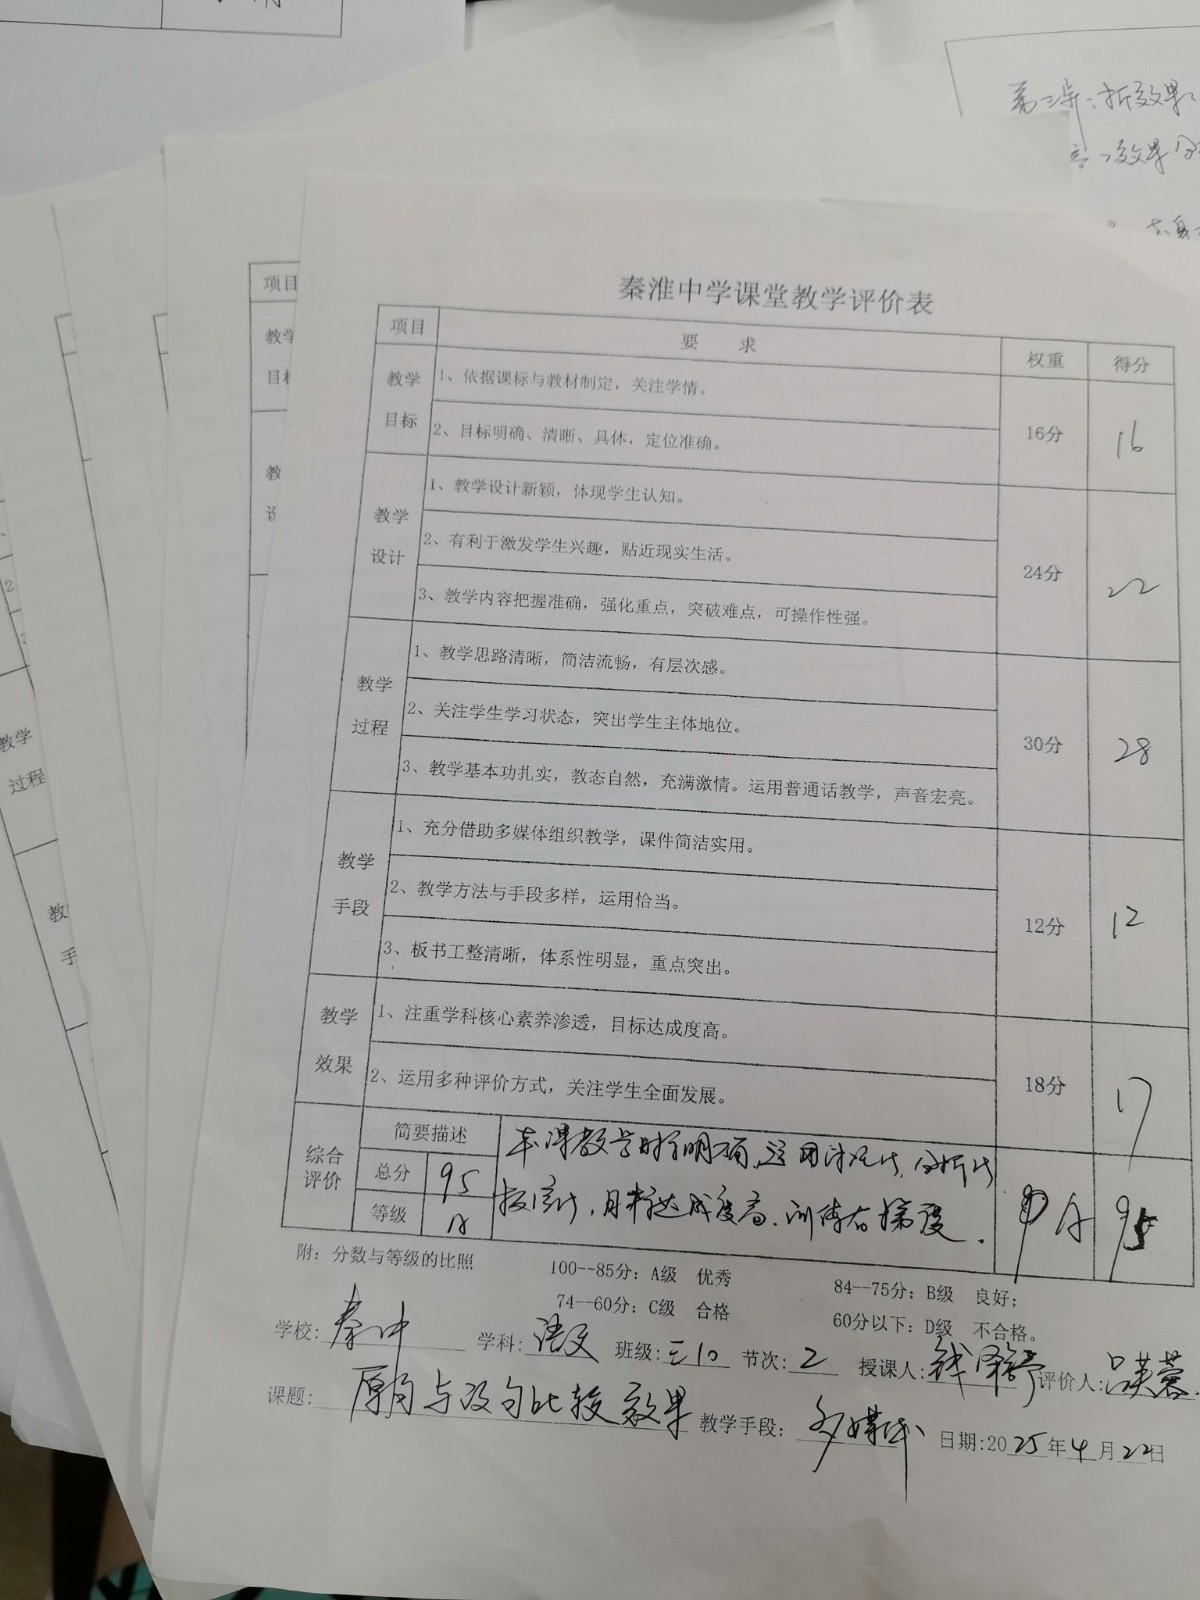 第三步:析效果
效果
秦淮中学课堂教学评价表
项目 要 求 权重 得分
教学目标 1、依据课标与教材制定，关注学情。 16分 16
2、目标明确、清晰、具体，定位准确。
教学设计 1、教学设计新颖，体现学生认知。 24分 22
2、有利于激发学生兴趣，贴近现实生活。
3、教学内容把握准确，强化重点，突破难点，可操作性强。
教学过程 1、教学思路清晰，简洁流畅，有层次感。 30分 28
2、关注学生学习状态，突出学生主体地位。
3、教学基本功扎实，教态自然，充满激情。运用普通话教学，声音宏亮。
教学手段 1、充分借助多媒体组织教学，课件简洁实用。 12分 12
2、教学方法与手段多样，运用恰当。
3、板书工整清晰，体系性明显，重点突出。
教学效果 1、注重学科核心素养渗透，目标达成度高。 18分 17
2、运用多种评价方式，关注学生全面发展。
综合评价 简要描述 本课教学目标明确，运用 A 95
总分 95 目标达成度高，训练有梯度。
等级 A
附：分数与等级的比照 100--85分：A级 优秀 84--75分：B级 良好；
74--60分：C级 合格 60分以下：D级 不合格。
学校：秦中 学科：语文 班级：三10 节次：2 授课人：钱 评价人：吕芙蓉
课题：原句与改句比较效果 教学手段：多媒体 日期：2025年4月22日
项目
教学
目标
教学
过程